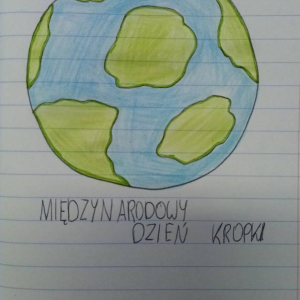 MIĘDZYNARODOWY
DZIEŃ KROPKI